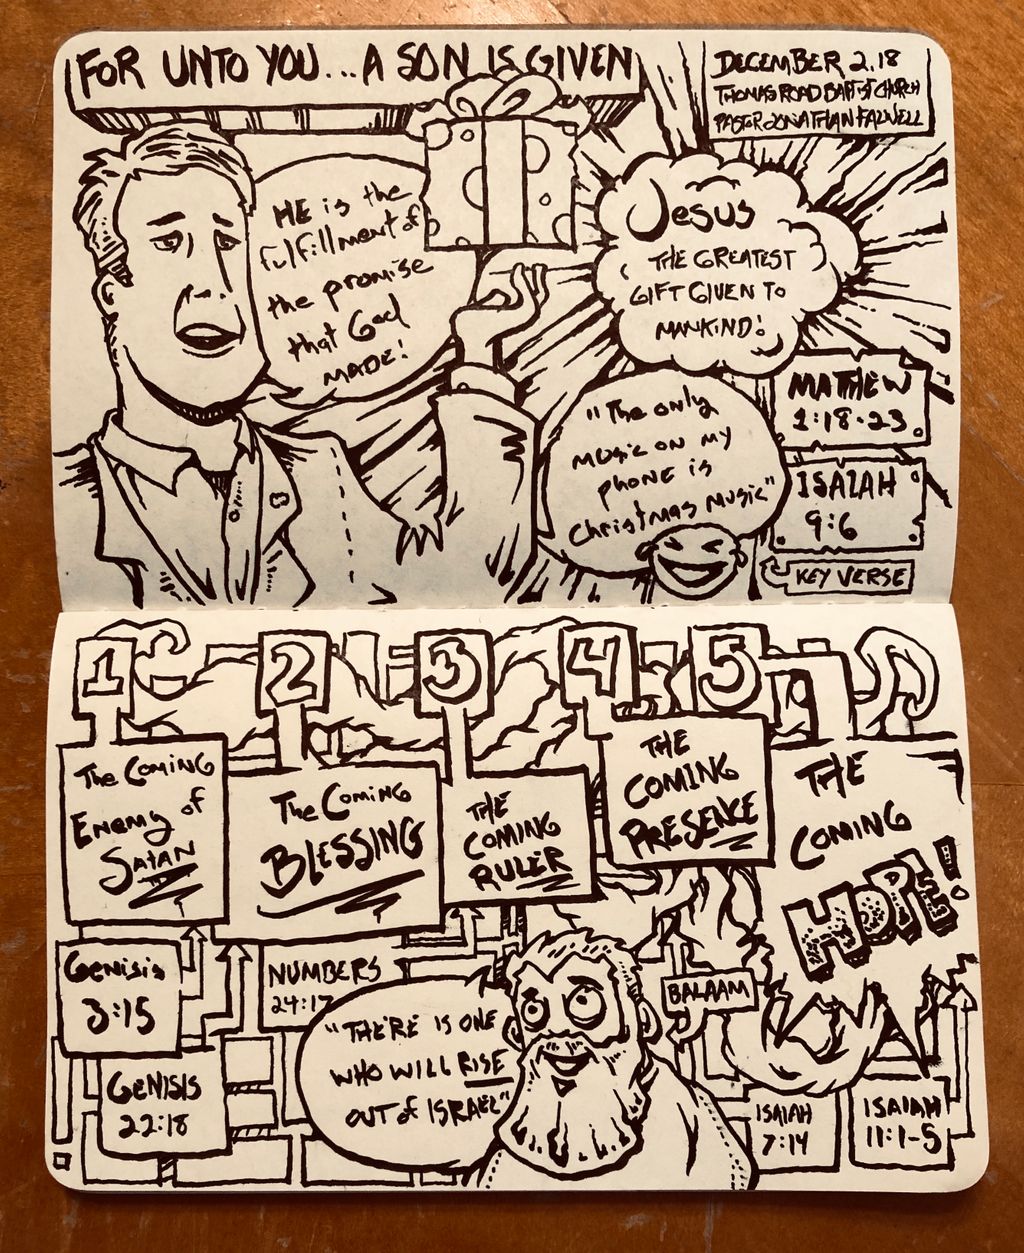 FOR UNTO YOU... A SON IS GIVEN
DECEMBER 2.18
THOMAS ROAD BAPTIST CHURCH
PASTOR JONATHAN FALWELL
HE is the
fulfillment of
the promise
that God
MADE!
Jesus
THE GREATEST
GIFT GIVEN TO
MANKIND!
"The only
music on my
phone is
Christmas Music"
MATTHEW
1:18-23
ISAIAH
9:6
KEY VERSE
1
2
3
4
5
The Coming
Enemy of
SATAN
The Coming
BLESSING
THE
COMING
RULER
THE
COMING
PRESENCE
THE
COMING
HOPE!
Genisis
3:15
GENISIS
22:18
NUMBERS
24:17
"THERE IS ONE
WHO WILL RISE
OUT of ISRAEL"
BALAAM
ISAIAH
7:14
ISAIAH
11:1-5